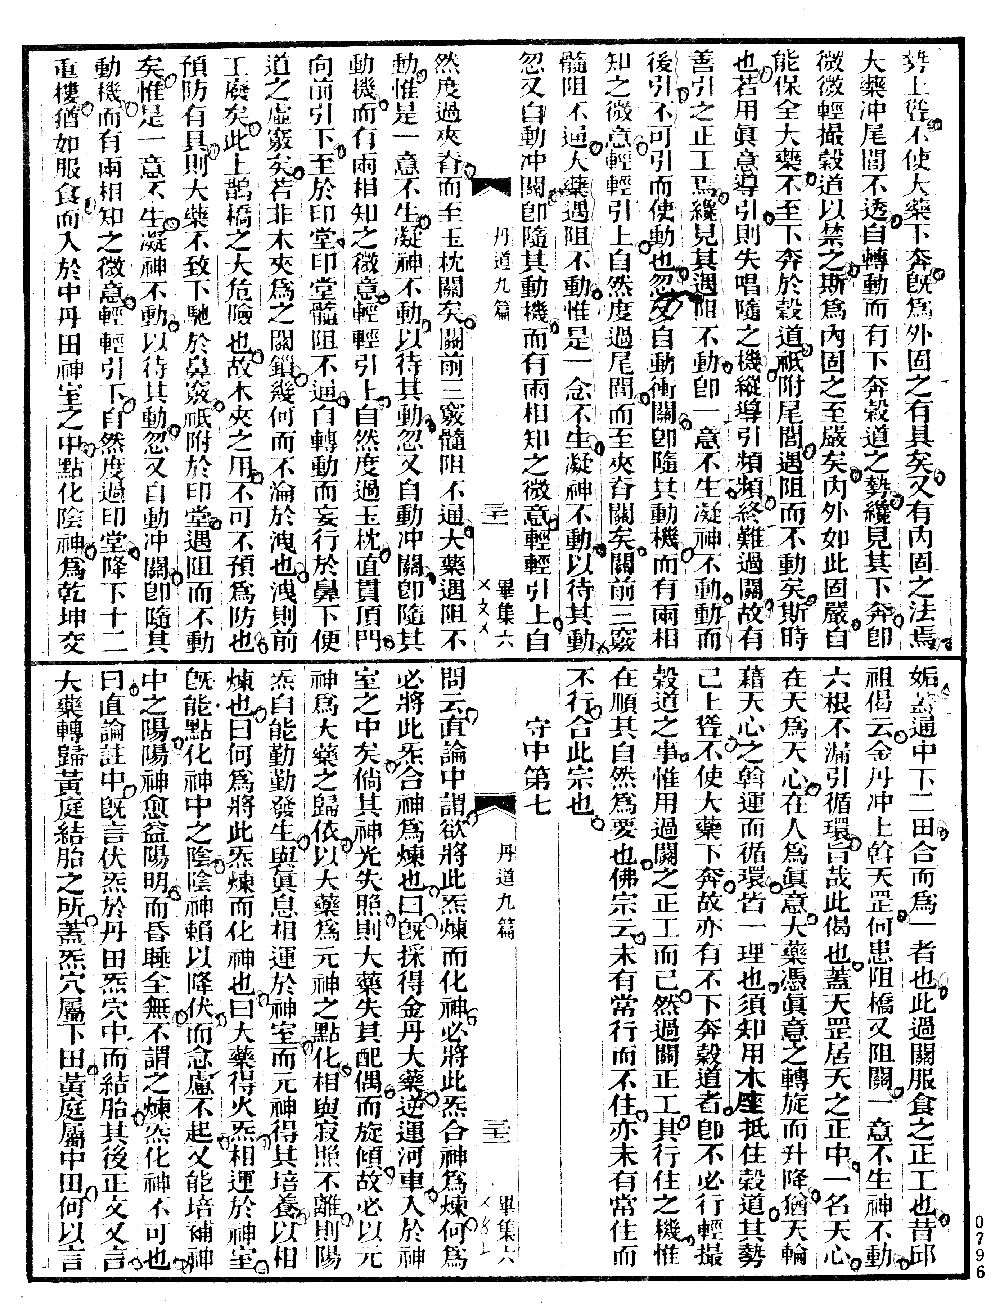 勢上聳不使大藥下奔旣爲外固之有具矣又有內固之法焉
大藥冲尾閭不透自轉動而有下奔穀道之勢纔見其下奔卽
微微輕撮穀道以禁之斯爲內固之至嚴矣內外如此固嚴自
能保全大藥不至下奔於穀道祇附尾閭遇阻而不動矣斯時
也若用眞意導引則失唱隨之機縱導引頻頻終難過關故有
善引之正工焉纔見其遇阻不動卽一意不生凝神不動動而
後引不可引而使動也忽又自動衝關卽隨其動機而有兩相
知之微意輕輕引上自然度過尾閭而至夾脊關矣關前三竅
髓阻不通大藥遇阻不動惟是一念不生凝神不動以待其動
忽又自動冲關卽隨其動機而有兩相知之微意輕輕引上自
丹道九篇
畢集六
然度過夾脊而至玉枕關矣關前三竅髓阻不通大藥遇阻不
動惟是一意不生凝神不動以待其動忽又自動冲關卽隨其
動機而有兩相知之微意輕輕引上自然度過玉枕直貫頂門
向前引下至於印堂印堂髓阻不通自轉動而妄行於鼻下便
道之虛竅矣若非木夾爲之關鎖幾何而不淪於洩也洩則前
工廢矣此上鵲橋之大危險也故木夾之用不可不預爲防也
預防有具則大藥不致下馳於鼻竅祇附於印堂遇阻而不動
矣惟是一意不生凝神不動以待其動忽又自動冲關卽隨其
動機而有兩相知之微意輕輕引下自然度過印堂降下十二
重樓猶如服食而入於中丹田神室之中點化陰神爲乾坤交
姤蓋通中下二田合而爲一者也此過關服食之正工也昔邱
祖偈云金丹冲上斡天罡何患阻橋又阻關一意不生神不動
六根不漏引循環旨哉此偈也蓋天罡居天之正中一名天心
在天爲天心在人爲眞意大藥憑眞意之轉旋而升降猶天輪
藉天心之斡運而循環皆一理也須知用木座抵住穀道其勢
已上聳不使大藥下奔故亦有不下奔穀道者卽不必行輕撮
穀道之事惟用過關之正工而已然過關正工其行住之機惟
在順其自然爲愛也佛宗云未有常行而不住亦未有常住而
不行合此宗也
守中第七
丹道九篇
畢集六
問云直論中謂欲將此炁煉而化神必將此炁合神爲煉何爲
必將此炁合神爲煉也曰旣採得金丹大藥逆運河車入於神
室之中矣倘其神光失照則大藥失其配偶而旋傾故必以元
神爲大藥之歸依以大藥爲元神之點化相與寂照不離則陽
炁自能勤勤發生與眞息相運於神室而元神得其培養以相
煉也曰何爲將此炁煉而化神也曰大藥得火炁相運於神室
旣能點化神中之陰陰神賴以降伏而念慮不起又能培補神
中之陽陽神愈益陽明而昏睡全無不謂之煉炁化神不可也
曰直論註中旣言伏炁於丹田炁穴中而結胎其後正文又言
大藥轉歸黃庭結胎之所蓋炁穴屬下田黃庭屬中田何以言
0796